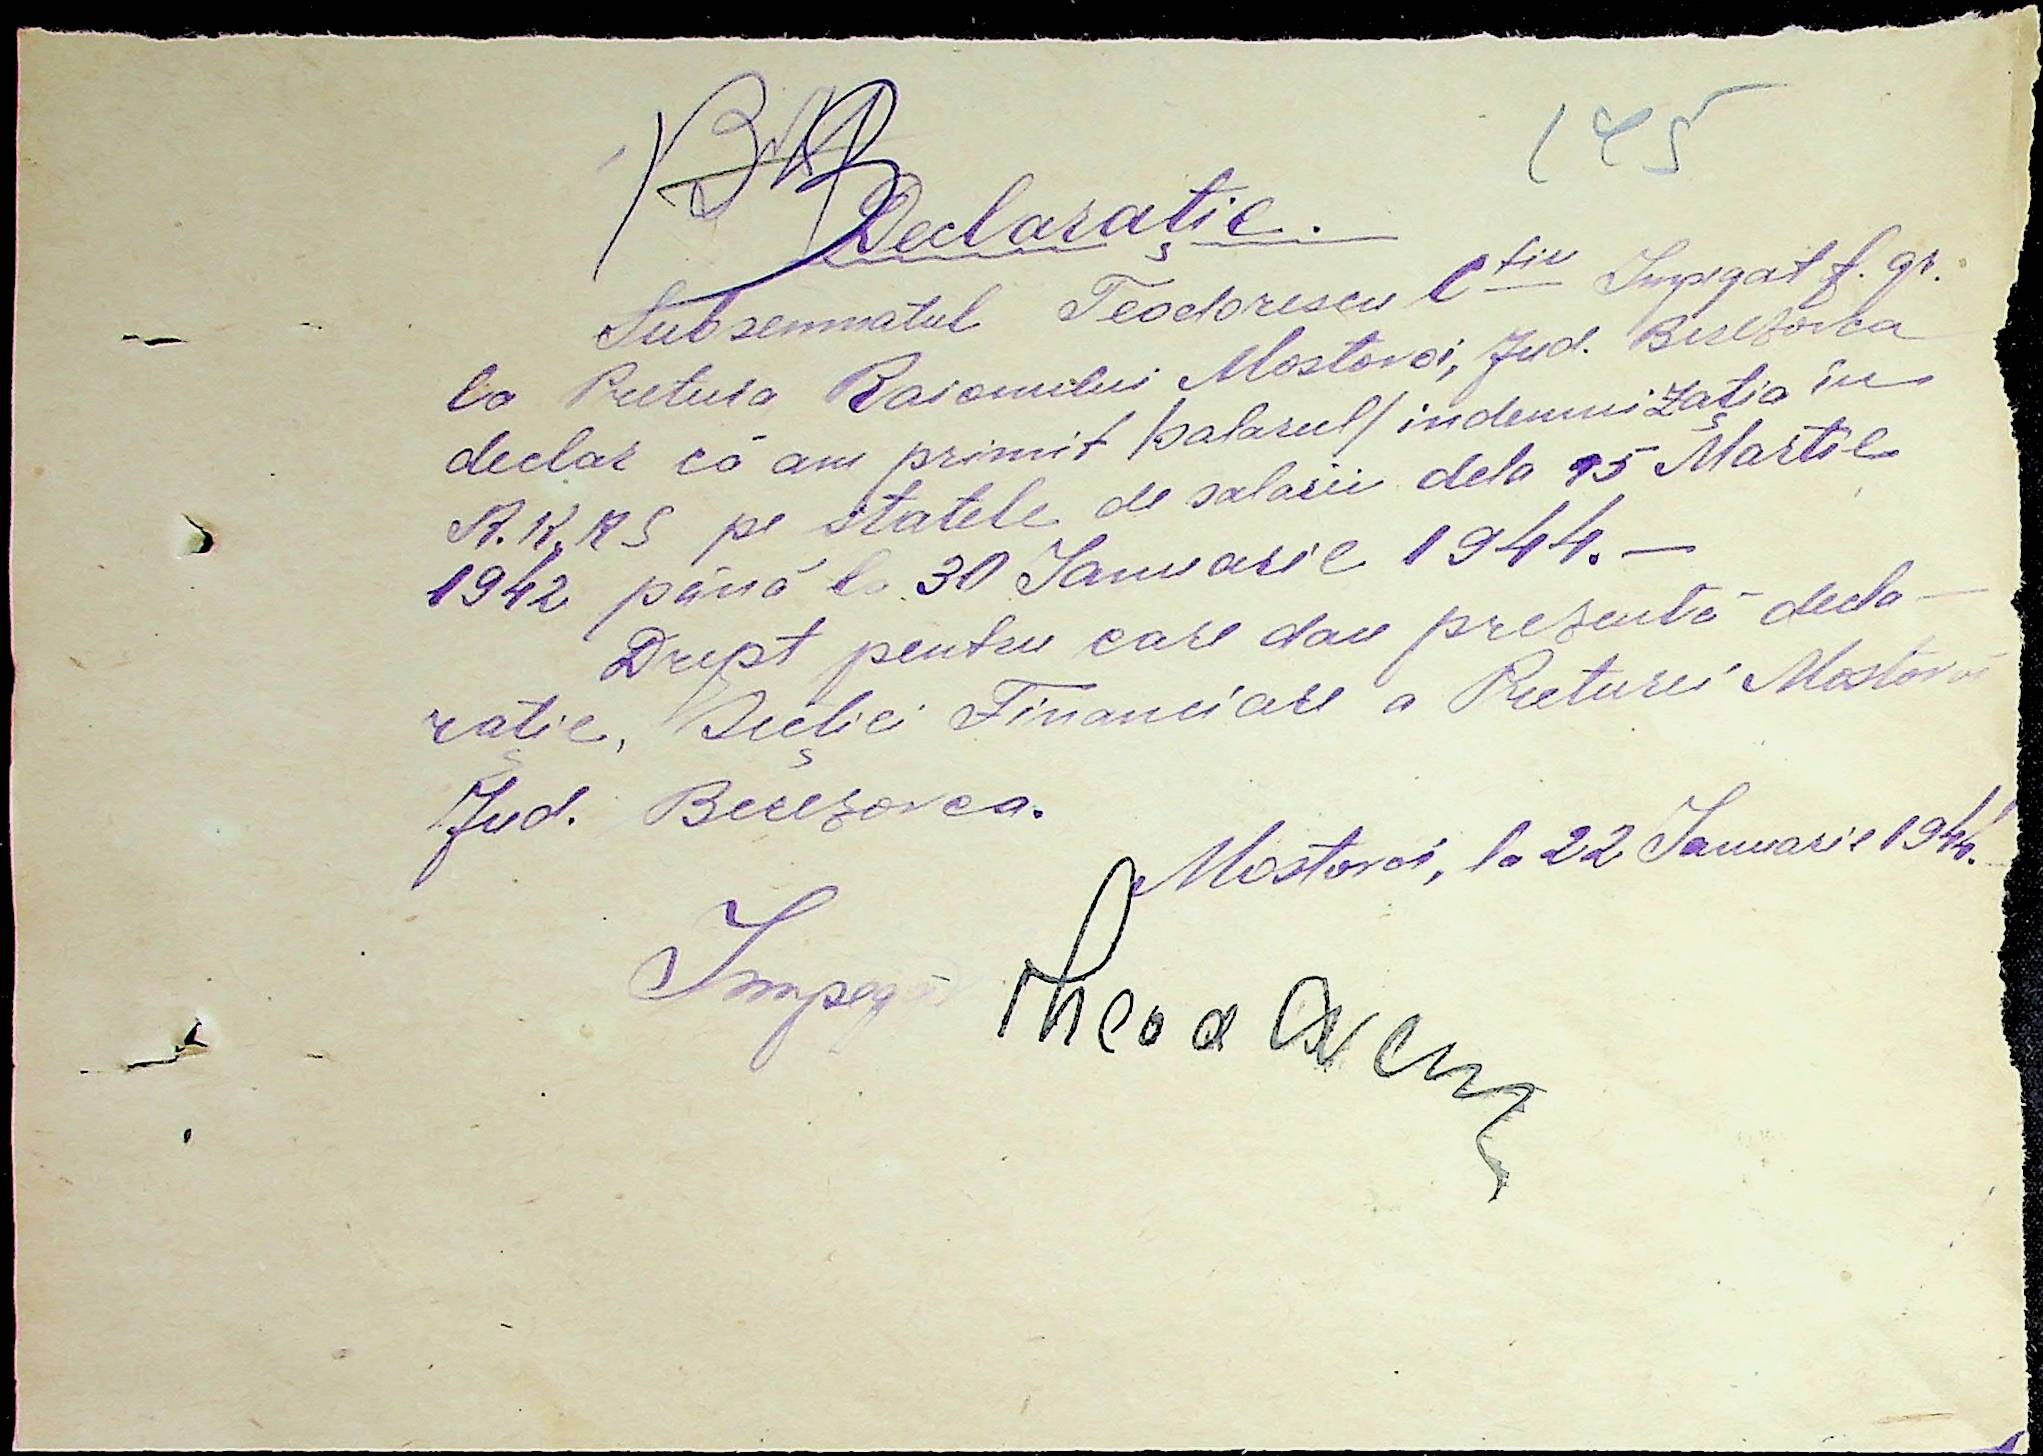 145
Declarație.
Subsemnatul Teodorescu C-tin Impegat f. gr.
la Pretura Raionului Mostovoi, Jud. Beresovca
declar că am primit /salarul/ indemnizația în
R.K.K.S pe statele de salarii dela 15 Martie
1942 până la 30 Ianuarie 1944. —
Drept pentru care dau prezentă decla-
rație, Secției Financiare a Preturei Mostovoi
Jud. Beresovca.
Mostovoi, la 22 Ianuarie 1944.
Impegat